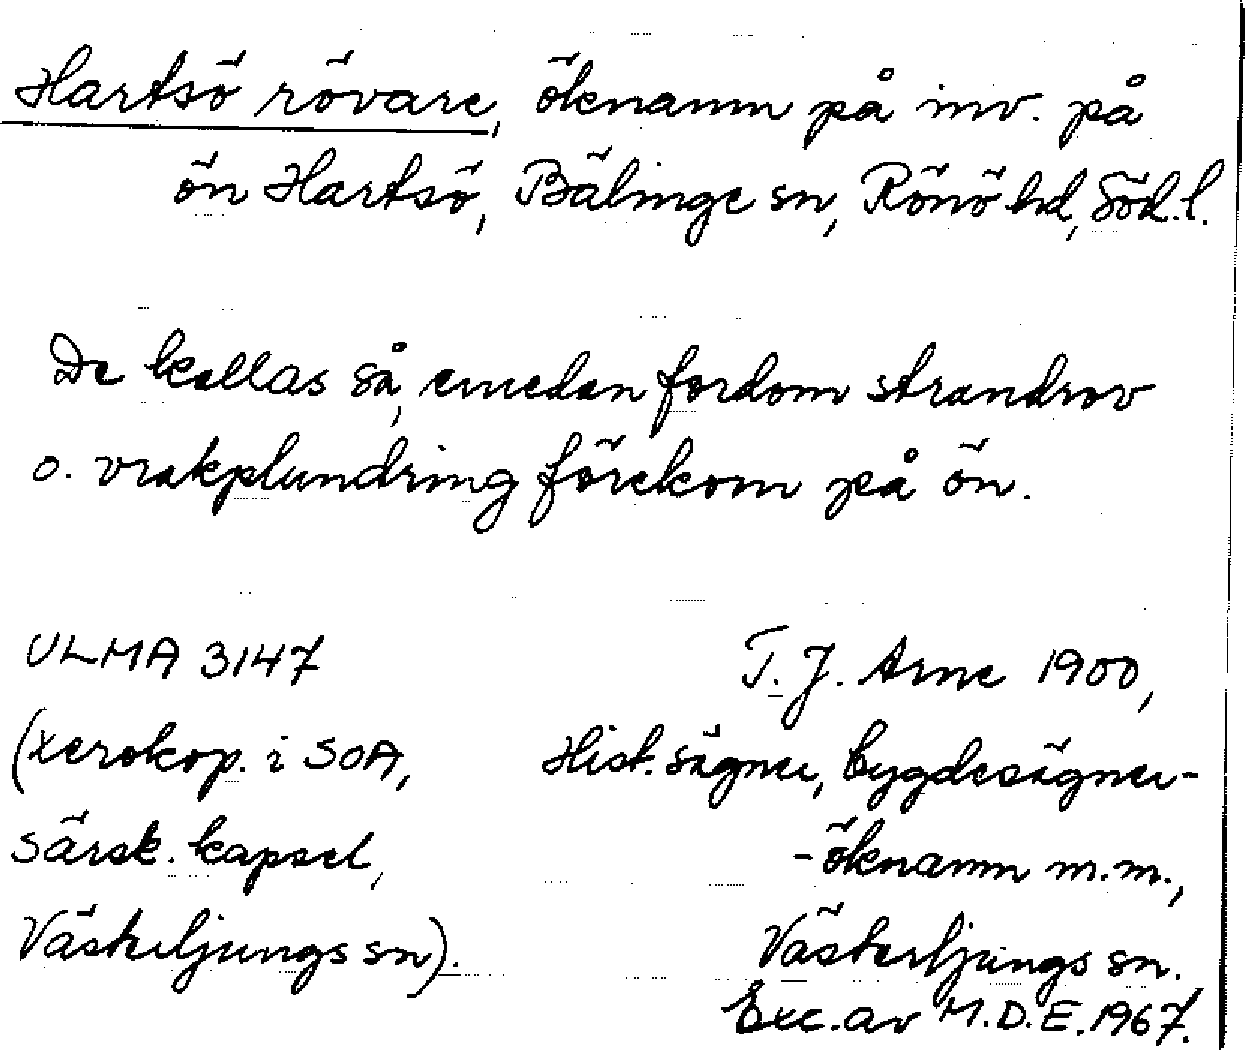 Hartsö rövare, öknamn på inv. på
ön Hartsö, Bälinge sn, Rönö hd, Söd.l.
De kallas så, emedan fordom strandrov
o. vrakplundring förekom på ön.
ULMA 3147
(xerokop. i SOA,
särsk. kapsel,
Västerljungs sn).
T. J. Arne 1900,
Hist. sägner, bygdesägner-
-öknamn m.m.,
Västerljungs sn.
Exc. av M.D.E. 1967.